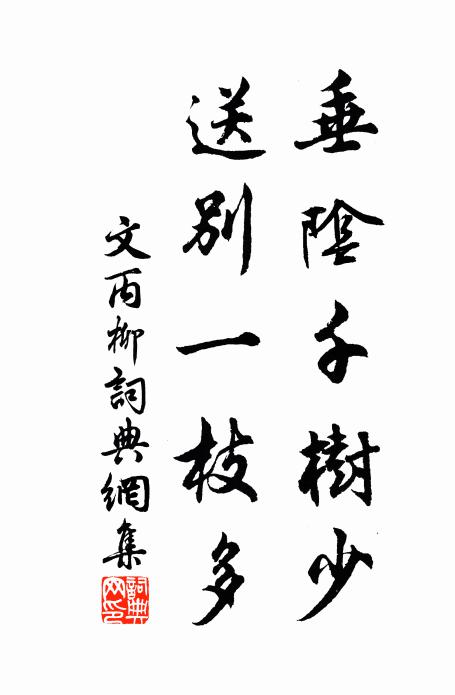 垂陰千樹少
送別一枝多
文丙柳詞典網集
詞典網印